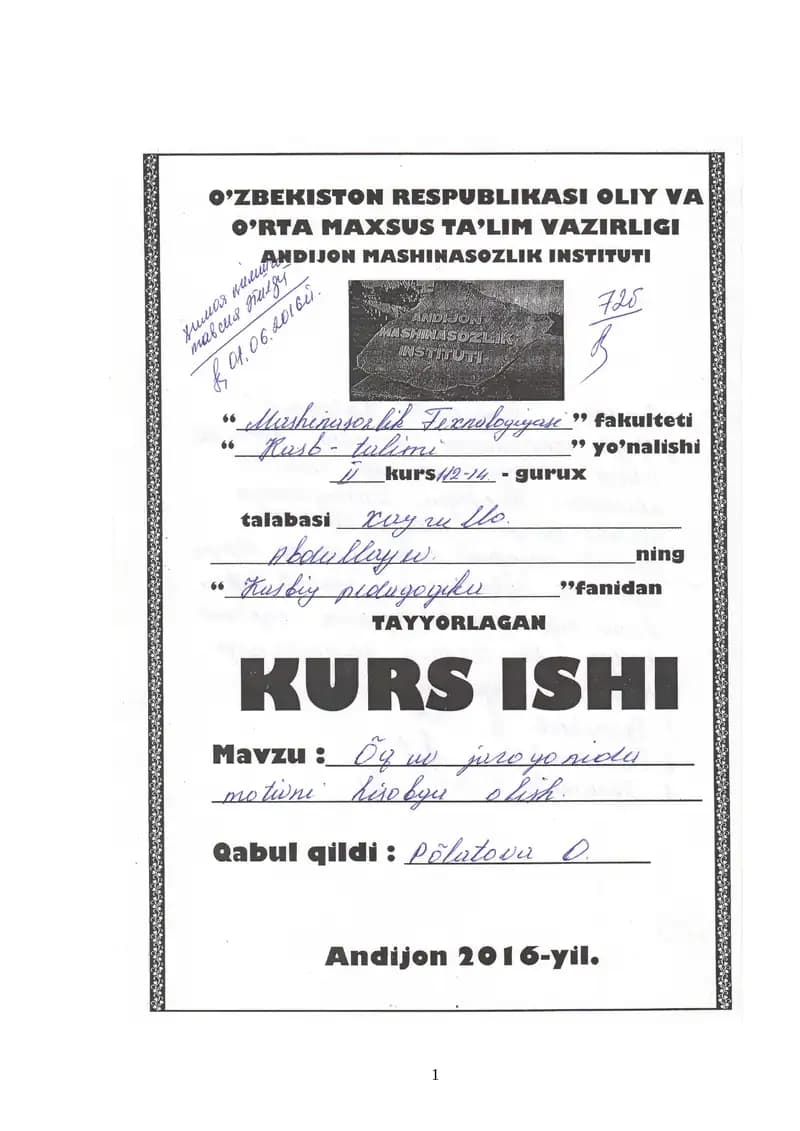 O'ZBEKISTON RESPUBLIKASI OLIY VA
O'RTA MAXSUS TA'LIM VAZIRLIGI
ANDIJON MASHINASOZLIK INSTITUTI
Химоя килишга
тавсия этилди
01.06.2016й.
ANDIJON
MASHINASOZLIK
INSTITUTI
72б
“ Mashinasozlik Texnologiyasi ” fakulteti
“ Kasb-talimi ” yo'nalishi
II kurs 112-14 - gurux
talabasi Xayrullo.
Abdullayev. ning
“ Kasbiy pedagogika ”fanidan
TAYYORLAGAN
KURS ISHI
Mavzu : Õquv jarayonida
motivni hisobga olish.
Qabul qildi : Põlatova O.
Andijon 2016-yil.
1